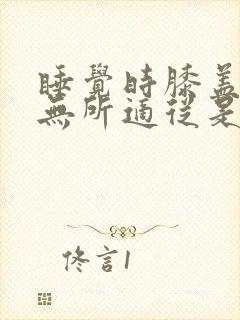 睡覺時膝蓋
無所適從是
佟言1